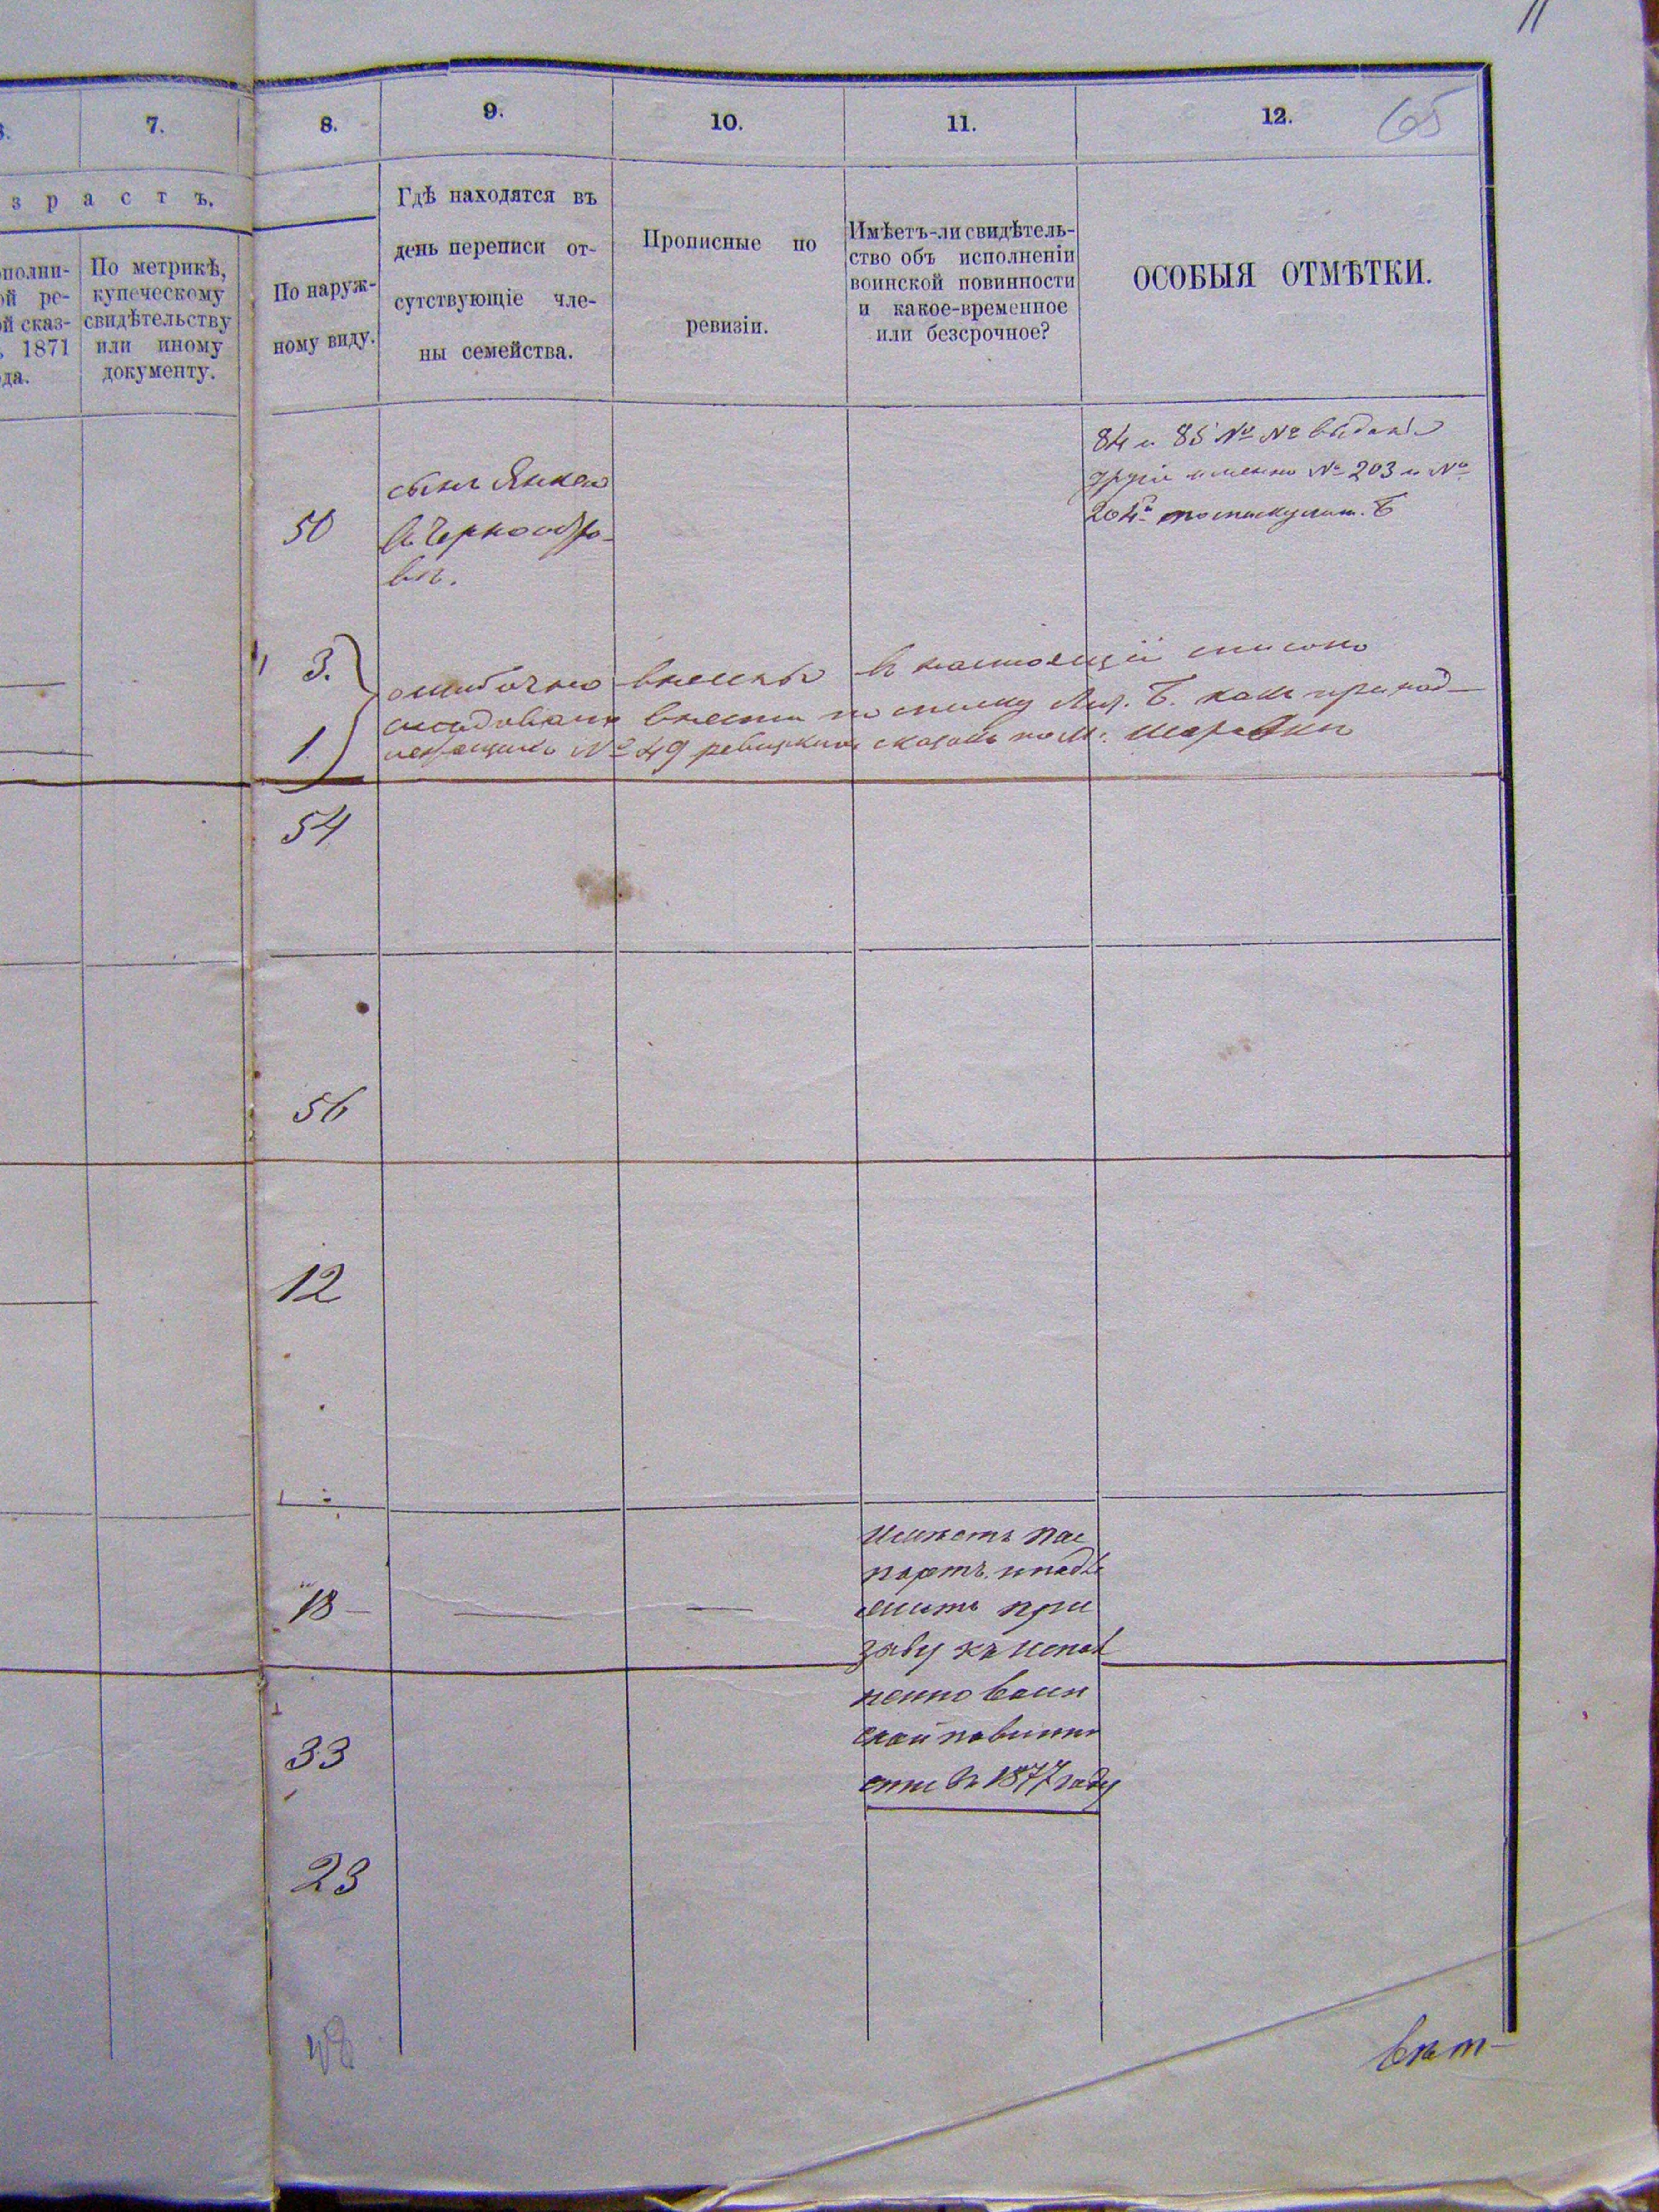 11
7.
8.
9.
10.
11.
12.
65
з р а с т ъ.
ополни-
ой ре-
ой сказ-
1871
ода.
По метрикѣ,
купеческому
свидѣтельству
или иному
документу.
По наруж-
ному виду.
Гдѣ находятся въ
день переписи от-
сутствующіе чле-
ны семейства.
Прописные по
ревизіи.
Имѣетъ-ли свидѣтель-
ство объ исполненіи
воинской повинности
и какое-временное
или безсрочное?
ОСОБЫЯ ОТМѢТКИ.
84 и 85 № №
другіе именно № 203 и №
204й
50
сынъ Янкель
въ Чернообы-
лѣ.
3.
1
ошибочно внесены въ настоящій списокъ
внести по списку Лит. Б. какъ принад-
№ 49 сказокъ по м.
54
56
12
18 —
имѣетъ пас
портъ. подле
житъ при
зыву къ испол
ненію воин
ской повинно
сти въ 1877 году
33
23